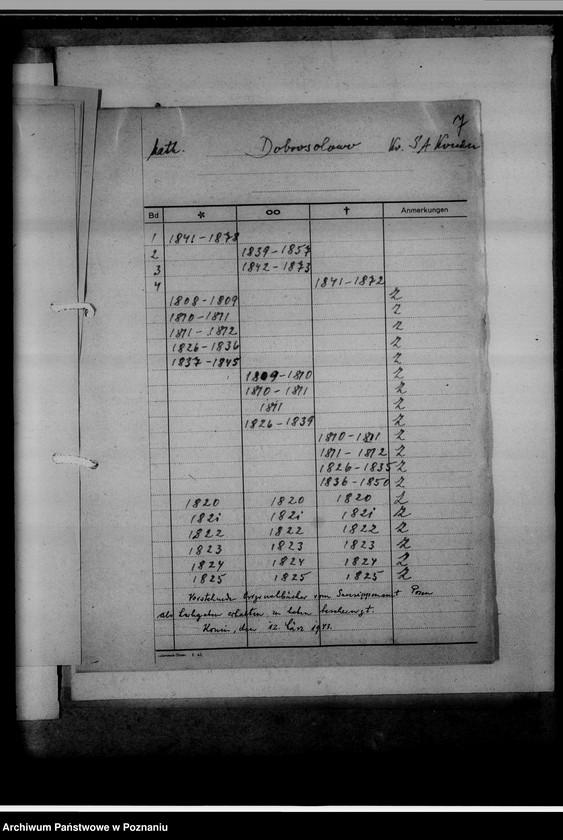 7
kath. Dobrosolowo Kr. S A Konin
Bd * ∞ † Anmerkungen
1 1841-1878
2 1839-1857
3 1842-1873
4 1841-1872
1808-1809 Z
1810-1811 Z
1811-1812 Z
1826-1836 Z
1837-1845 Z
1809-1810 Z
1810-1811 Z
1811 Z
1826-1839 Z
1810-1811 Z
1811-1812 Z
1826-1835 Z
1836-1850 Z
1820 1820 1820 Z
1821 1821 1821 Z
1822 1822 1822 Z
1823 1823 1823 Z
1824 1824 1824 Z
1825 1825 1825 Z
Vorstehende Originalbücher vom Gausippenamt Posen
als erhalten zu haben bescheinigt
Konin, den 12. März 1943.
Archiwum Państwowe w Poznaniu